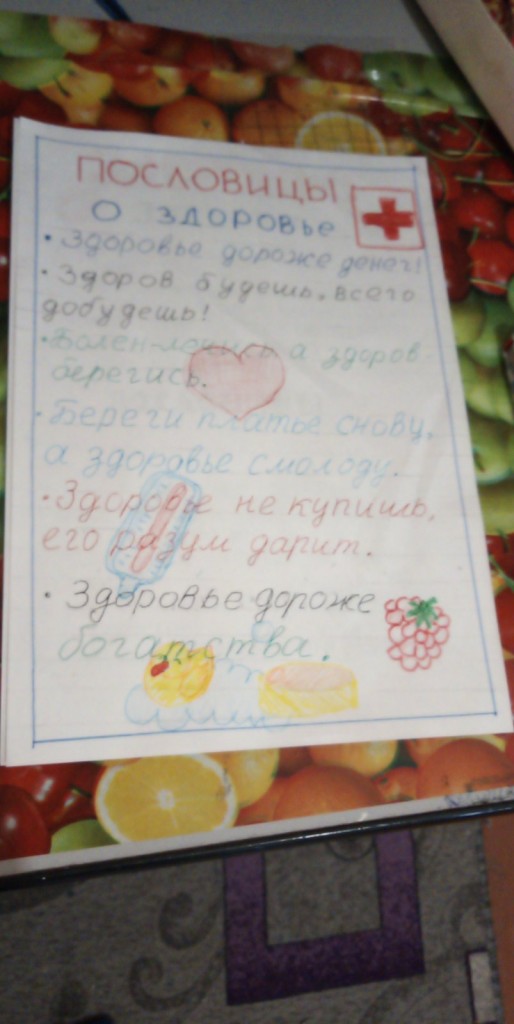 ПОСЛОВИЦЫ
О ЗДОРОВЬЕ
• Здоровье дороже денег!
• Здоров будешь, всего
добудешь!
• Болен-лечись а здоров-
берегись.
• Береги платье снову,
а здоровье смолоду.
• Здоровье не купишь,
его разум дарит.
• Здоровье дороже
богатства.